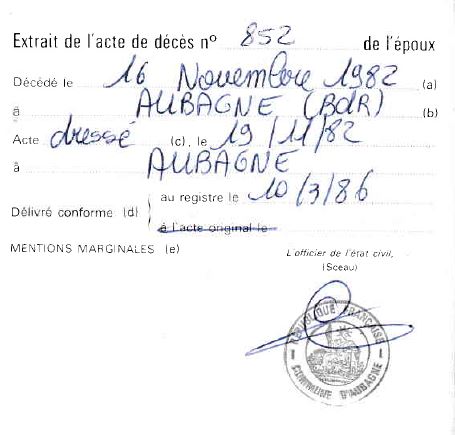 Extrait de l'acte de décès nº 852 de l'époux
Décédé le 16 Novembre 1982 (a)
à AUBAGNE (BdR) (b)
Acte dressé (c), le 19/11/82
à AUBAGNE
au registre le 10/3/86
Délivré conforme (d)
à l'acte original le
MENTIONS MARGINALES (e)
L'officier de l'état civil,
(Sceau)
RÉPUBLIQUE FRANÇAISE
COMMUNE D'AUBAGNE